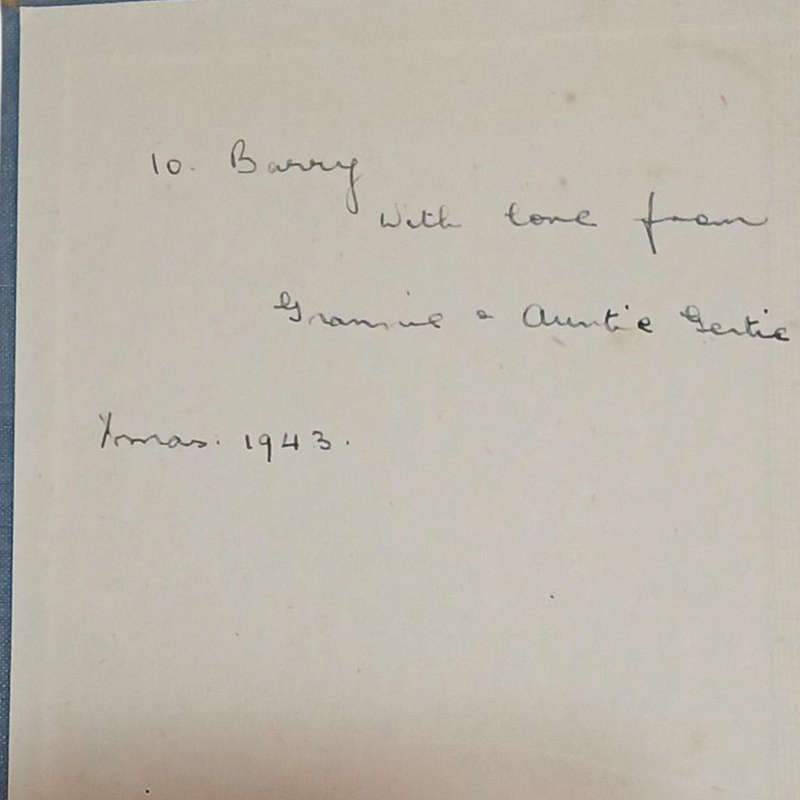 To. Barry
With love from
Grannie & Auntie Gertie
Xmas. 1943.